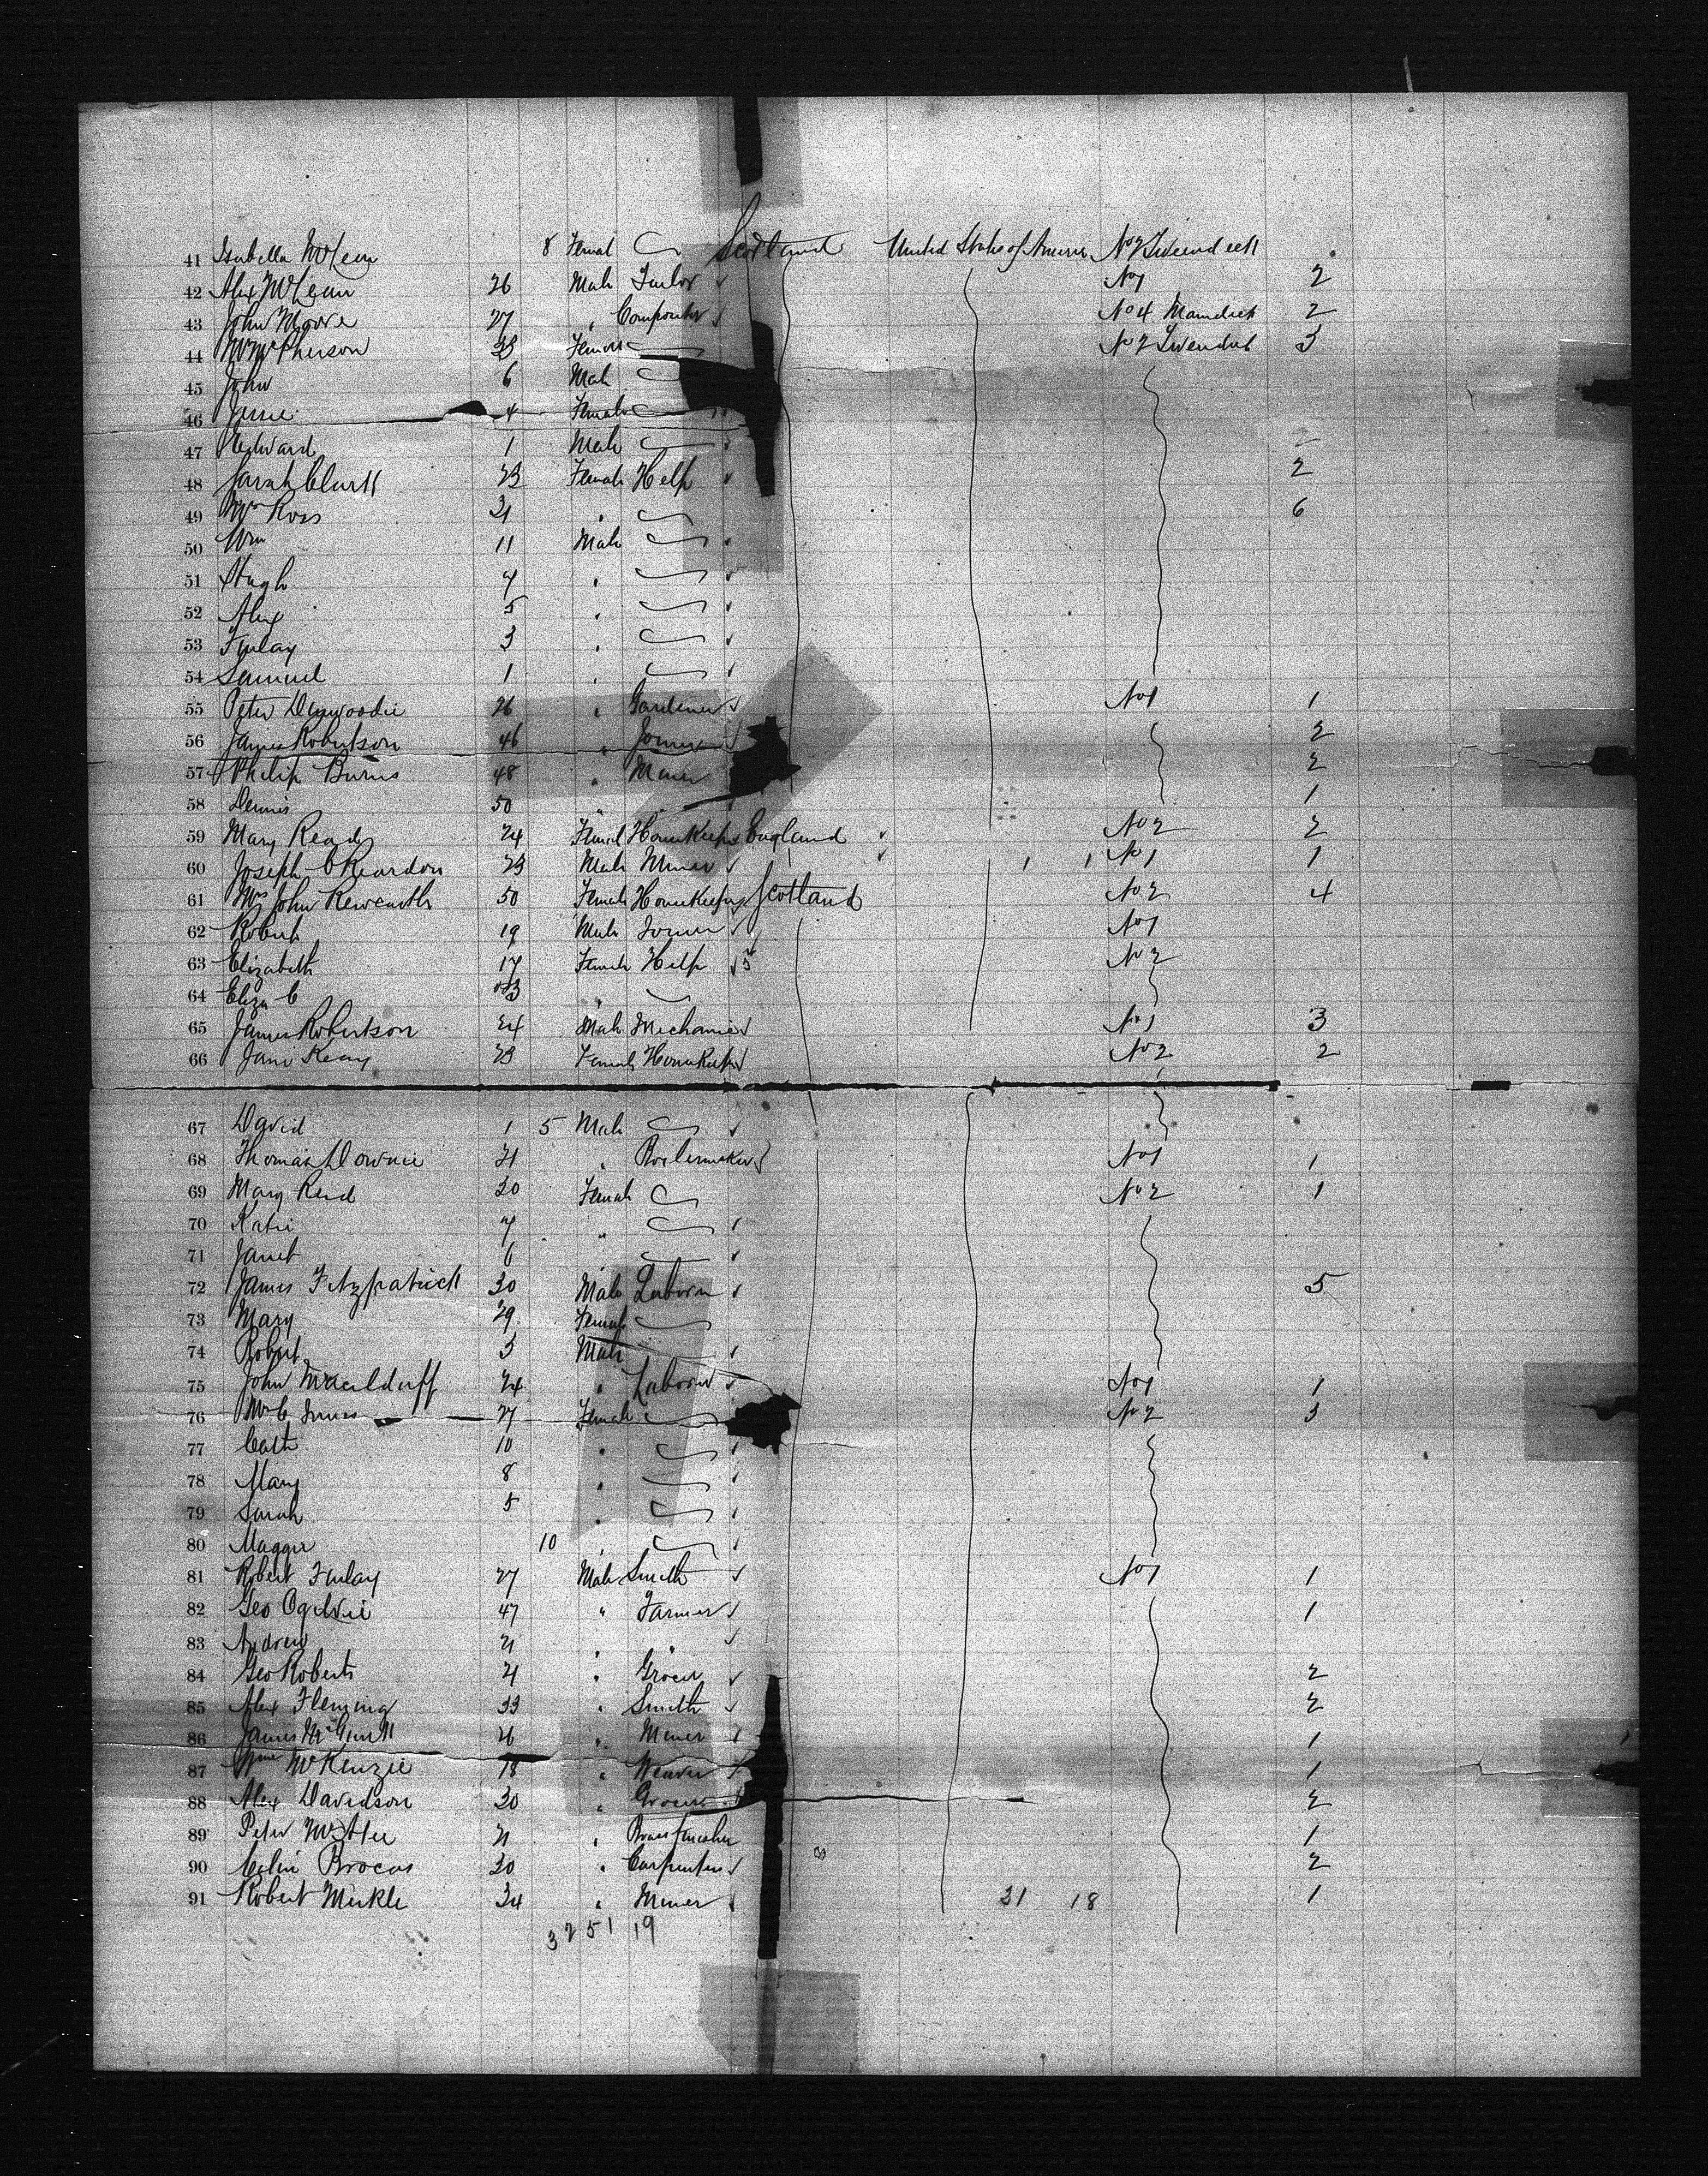 41 Isabella McLean 8 Femal Scotland United States of America No 2 Tweendeck
42 Alex McLean 26 Male Tailor No 1 2
43 John Moore 27 " Compositor No 4 Maindeck 2
44 Mrs McPherson 28 Female No 2 Tweendeck 3
45 John 6 Male
46 Jessie 4 Female
47 Edward 1 Male
48 Sarah Clark 23 Female Help 2
49 Mrs Ross 31 " 6
50 Wm 11 Male
51 Hugh 7 "
52 Alex 5 "
53 Finlay 3 "
54 Samuel 1 "
55 Peter 26 " Gardener No 1 1
56 James Robertson 46 " Joiner 2
57 Philip Burns 48 " Miner 2
58 Dennis 50 " " 1
59 Mary Read 24 Femal Housekeeper England No 2 2
60 Joseph O'Reardon 23 Male Miner 1 1 No 1 1
61 Mrs John 50 Female Housekeeper Scotland No 2 4
62 Robert 19 Male Joiner No 1
63 Elizabeth 17 Female Help No 2
64 Eliza C "
65 James Robertson 24 Male Mechanic No 1 3
66 Jane Keay 23 Female Housekeeper No 2 2
67 David 1 5 Male
68 Thomas Downie 21 " Boilermaker No 1 1
69 Mary Reid 30 Female No 2 1
70 Katie 7 "
71 Janet 6
72 James Fitzpatrick 30 Male Laborer 5
73 Mary 29 Female
74 Robert 3 Male
75 John 24 " Laborer No 1 1
76 Mrs C Innes 27 Female No 2 3
77 Cath 10 "
78 Mary 8 "
79 Sarah 5 "
80 Maggie 10 "
81 Robert Finlay 27 Male Smith No 1 1
82 Geo Ogilvie 47 " Farmer 1
83 Andrew 21 " "
84 Geo Roberts 21 " Grocer 2
85 Alex Fleming 33 " Smith 2
86 James 26 " Miner 1
87 Wm McKenzie 18 " Weaver 1
88 Alex Davidson 30 " Grocer 2
89 Peter 21 " Brassfinisher 1
90 Colin Brocas 30 " Carpenter 2
91 Robert Meikle 34 " Miner 31 18 1
3 2 51 19